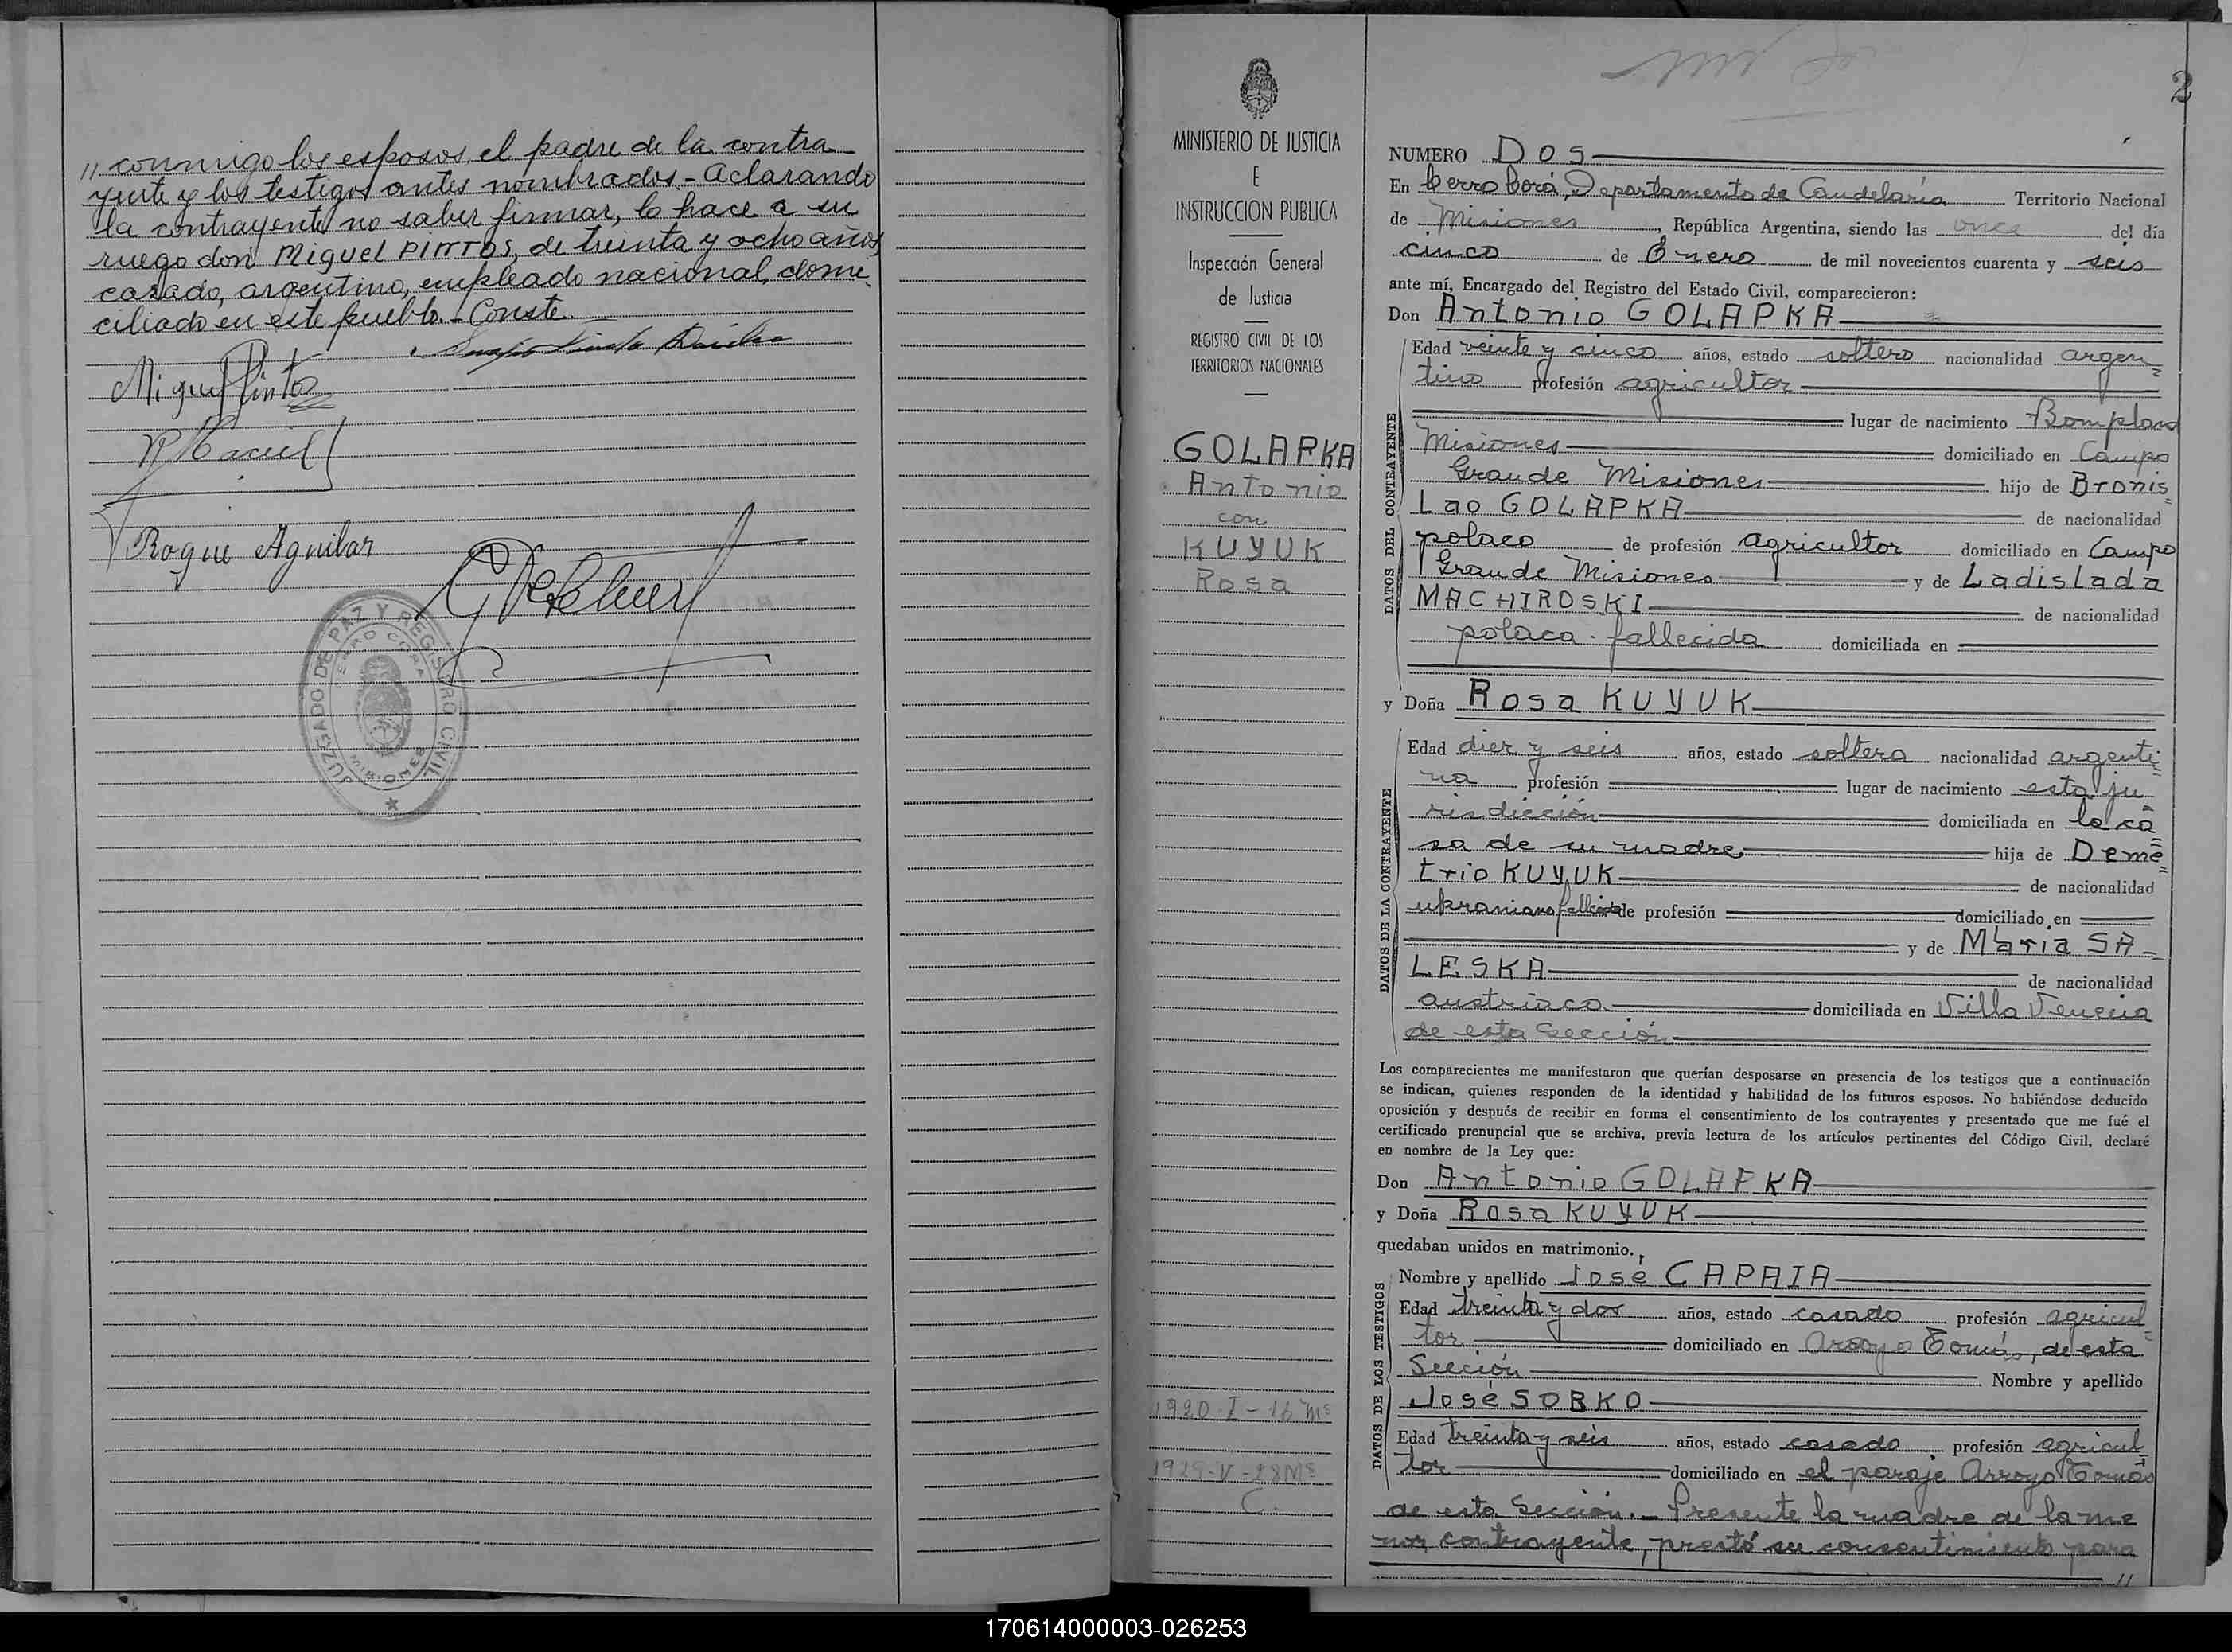 // conmigo los esposos, el padre de la contra-
yente y los testigos antes nombrados.- Aclarando
la contrayente no saber firmar, lo hace a su
ruego don Miguel PINTOS, de treinta y ocho años,
casado, argentino, empleado nacional, domi-
ciliado en este pueblo.- Conste.
Miguel Pintos
Roque Aguilar
JUZGADO DE PAZ Y REGISTRO CIVIL
CERRO CORA
MISIONES
MINISTERIO DE JUSTICIA
E
INSTRUCCION PUBLICA
Inspección General
de Justicia
REGISTRO CIVIL DE LOS
TERRITORIOS NACIONALES
GOLAPKA
Antonio
con
KUYUK
Rosa
1920-I-16 Ms
1929-V-28 Ms
C.
2
NUMERO DOS
En Cerro Corá, Departamento de Candelaria Territorio Nacional
de Misiones, República Argentina, siendo las once del día
cinco de Enero de mil novecientos cuarenta y seis
ante mí, Encargado del Registro del Estado Civil, comparecieron:
Don Antonio GOLAPKA
DATOS DEL CONTRAYENTE
Edad veinte y cinco años, estado soltero nacionalidad argen=
tino profesión agricultor
lugar de nacimiento Bompland
Misiones domiciliado en Campo
Grande Misiones hijo de Bronis=
Lao GOLAPKA de nacionalidad
polaco de profesión agricultor domiciliado en Campo
Grande Misiones y de Ladislada
MACHIROSKI de nacionalidad
polaca - fallecida domiciliada en
y Doña Rosa KUYUK
DATOS DE LA CONTRAYENTE
Edad diez y seis años, estado soltera nacionalidad argenti=
na profesión lugar de nacimiento esta ju=
risdicción domiciliada en la ca=
sa de su madre hija de Deme=
trio KUYUK de nacionalidad
ukraniano fallecido de profesión domiciliado en
y de María SA=
LESKA de nacionalidad
austriaca domiciliada en Villa Venecia
de esta Sección
Los comparecientes me manifestaron que querían desposarse en presencia de los testigos que a continuación
se indican, quienes responden de la identidad y habilidad de los futuros esposos. No habiéndose deducido
oposición y después de recibir en forma el consentimiento de los contrayentes y presentado que me fué el
certificado prenupcial que se archiva, previa lectura de los artículos pertinentes del Código Civil, declaré
en nombre de la Ley que:
Don Antonio GOLAPKA
y Doña Rosa KUYUK
quedaban unidos en matrimonio.
DATOS DE LOS TESTIGOS
Nombre y apellido José CAPAIA
Edad treinta y dos años, estado casado profesión agricul=
tor domiciliado en Arroyo Tomás, de esta
Sección Nombre y apellido
José SOBKO
Edad treinta y seis años, estado casado profesión agricul=
tor domiciliado en el paraje Arroyo Tomás
de esta Sección.- Presente la madre de la me
nor contrayente, prestó su consentimiento para
//
170614000003-026253